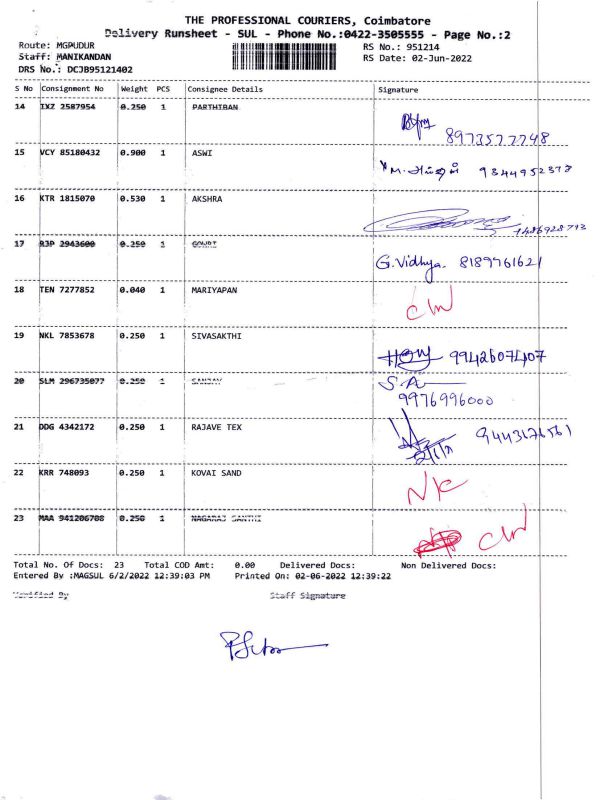 THE PROFESSIONAL COURIERS, Coimbatore
Delivery Runsheet - SUL - Phone No.:0422-3505555 - Page No.:2
Route: MGPUDUR RS No.: 951214
Staff: MANIKANDAN RS Date: 02-Jun-2022
DRS No.: DCJB95121402
S No Consignment No Weight PCS Consignee Details Signature
14 IXZ 2587954 0.250 1 PARTHIBAN
8973577748
15 VCY 85180432 0.900 1 ASWI
9344952373
16 KTR 1815070 0.530 1 AKSHRA
17 RJP 2943600 0.250 1 GOWRI
G.Vidhya. 8189961621
18 TEN 7277852 0.040 1 MARIYAPAN
CW
19 NKL 7853678 0.250 1 SIVASAKTHI
9942607407
20 SLM 296735077 0.250 1 SANJAY
S.A
9976996000
21 DDG 4342172 0.250 1 RAJAVE TEX
9443176561
22 KRR 748093 0.250 1 KOVAI SAND
NK
23 MAA 941206708 0.250 1 NAGARAJ SANTHI
CW
Total No. Of Docs: 23 Total COD Amt: 0.00 Delivered Docs: Non Delivered Docs:
Entered By :MAGSUL 6/2/2022 12:39:03 PM Printed On: 02-06-2022 12:39:22
Verified By Staff Signature